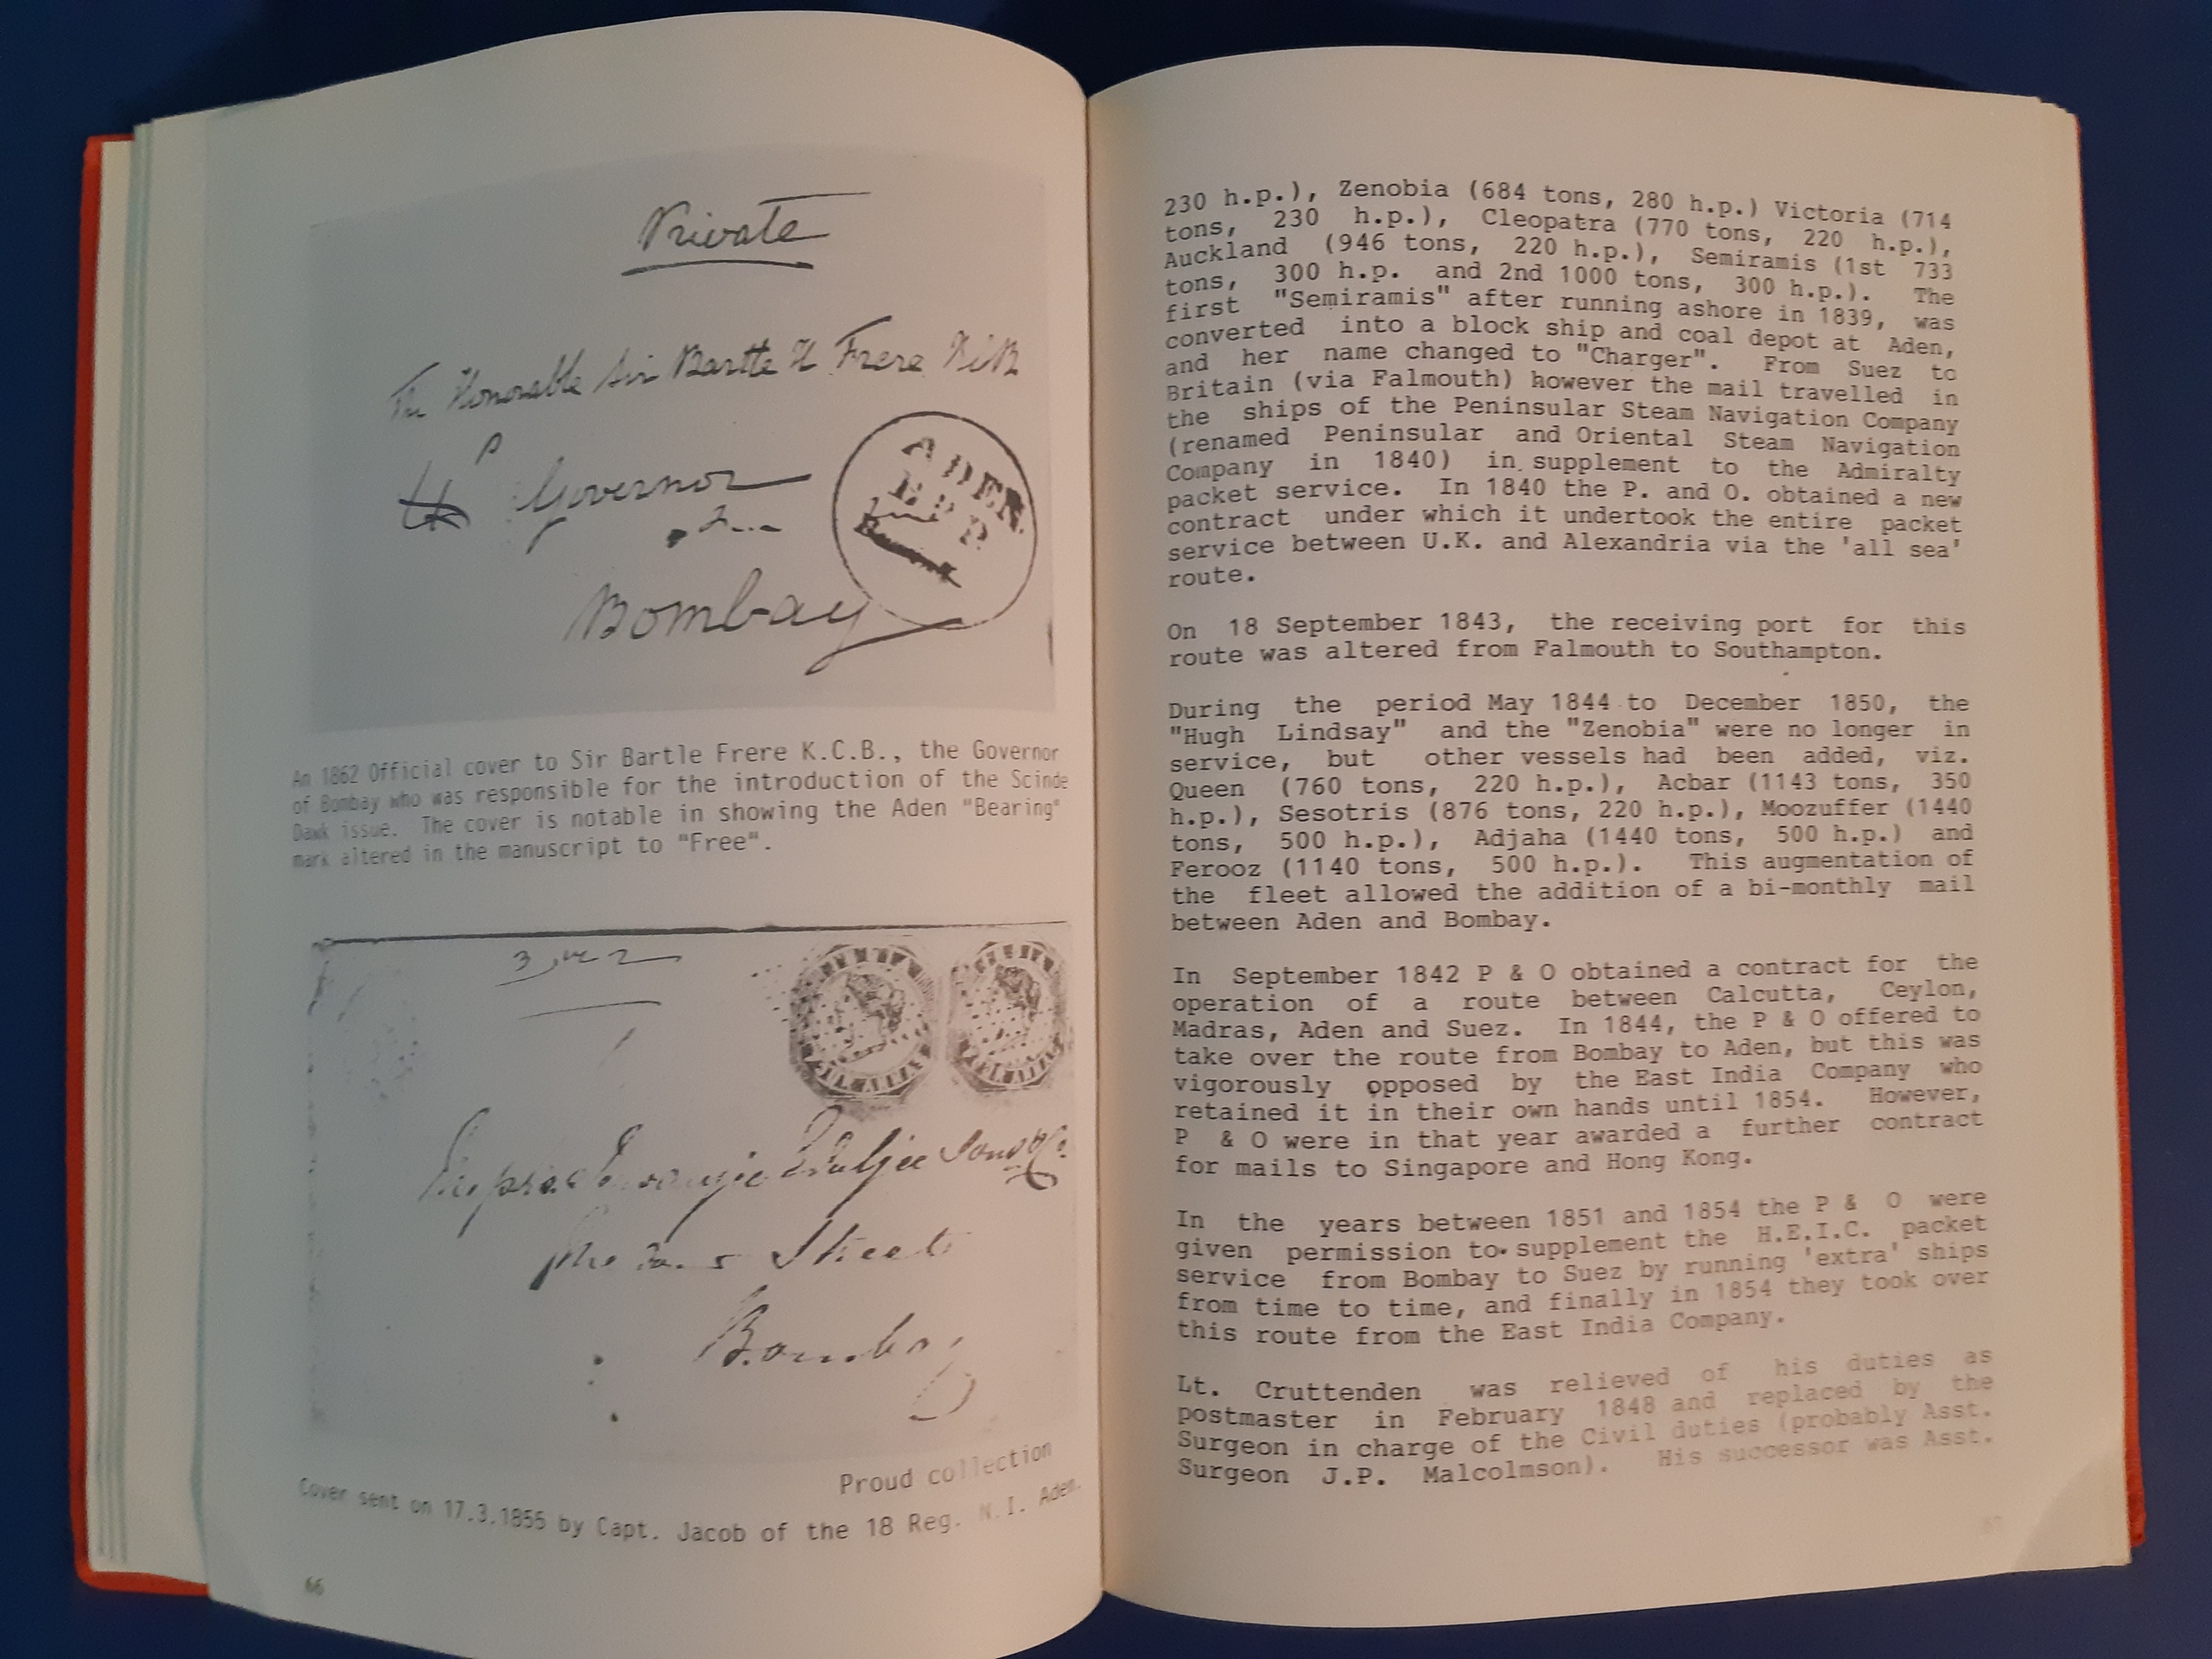 Private
The Honorable Sir Bartle H Frere KCB
Governor
Bombay
ADEN
An 1862 Official cover to Sir Bartle Frere K.C.B., the Governor
of Bombay who was responsible for the introduction of the Scinde
Dawk issue. The cover is notable in showing the Aden "Bearing"
mark altered in the manuscript to "Free".
Sons & Co.
Street
Bombay
Proud collection
Cover sent on 17.3.1855 by Capt. Jacob of the 18 Reg. N.I. Aden.
66
230 h.p.), Zenobia (684 tons, 280 h.p.) Victoria (714
tons, 230 h.p.), Cleopatra (770 tons, 220 h.p.),
Auckland (946 tons, 220 h.p.), Semiramis (1st 733
tons, 300 h.p. and 2nd 1000 tons, 300 h.p.). The
first "Semiramis" after running ashore in 1839, was
converted into a block ship and coal depot at Aden,
and her name changed to "Charger". From Suez to
Britain (via Falmouth) however the mail travelled in
the ships of the Peninsular Steam Navigation Company
(renamed Peninsular and Oriental Steam Navigation
Company in 1840) in supplement to the Admiralty
packet service. In 1840 the P. and O. obtained a new
contract under which it undertook the entire packet
service between U.K. and Alexandria via the 'all sea'
route.
On 18 September 1843, the receiving port for this
route was altered from Falmouth to Southampton.
During the period May 1844 to December 1850, the
"Hugh Lindsay" and the "Zenobia" were no longer in
service, but other vessels had been added, viz.
Queen (760 tons, 220 h.p.), Acbar (1143 tons, 350
h.p.), Sesotris (876 tons, 220 h.p.), Moozuffer (1440
tons, 500 h.p.), Adjaha (1440 tons, 500 h.p.) and
Ferooz (1140 tons, 500 h.p.). This augmentation of
the fleet allowed the addition of a bi-monthly mail
between Aden and Bombay.
In September 1842 P & O obtained a contract for the
operation of a route between Calcutta, Ceylon,
Madras, Aden and Suez. In 1844, the P & O offered to
take over the route from Bombay to Aden, but this was
vigorously opposed by the East India Company who
retained it in their own hands until 1854. However,
P & O were in that year awarded a further contract
for mails to Singapore and Hong Kong.
In the years between 1851 and 1854 the P & O were
given permission to supplement the H.E.I.C. packet
service from Bombay to Suez by running 'extra' ships
from time to time, and finally in 1854 they took over
this route from the East India Company.
Lt. Cruttenden was relieved of his duties as
postmaster in February 1848 and replaced by the
Surgeon in charge of the Civil duties (probably Asst.
Surgeon J.P. Malcolmson). His successor was Asst.